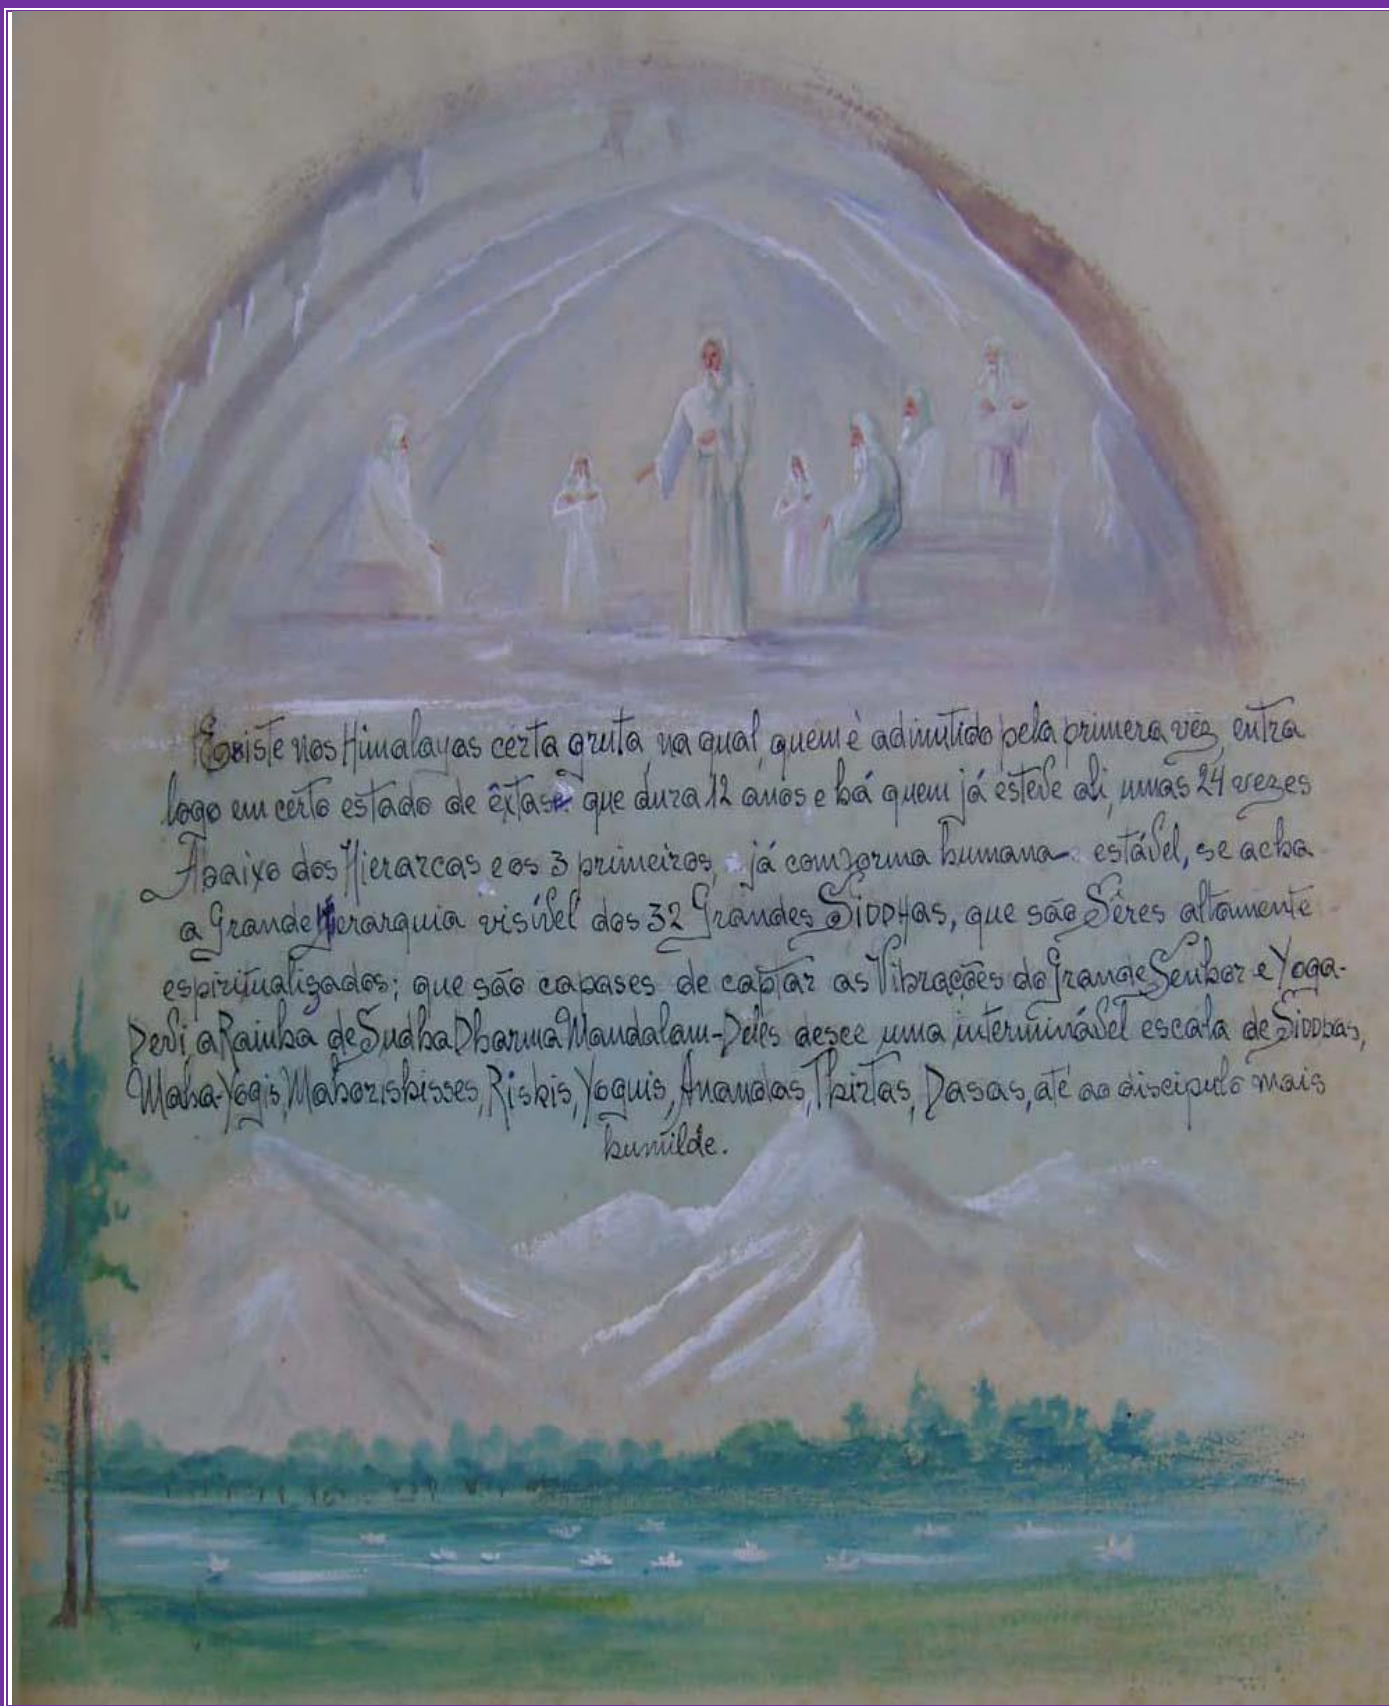 Existe nos Himalayas certa gruta, na qual, quem è admitido pela primera vez, entra
logo em certo estado de êxtase que dura 12 anos e há quem já esteve ali, umas 24 vezes
Abaixo dos Hierarcas e os 3 primeiros, já com forma humana estável, se acha
a Grande Hierarquia visível dos 32 Grandes Siddhas, que são Sêres altamente
espiritualizados; que são capases de captar as Vibrações do Grande Senhor e Yoga-
Devi, a Rainha de Sudha Dharma Mandalam-Deles desce uma interminável escala de Siddhas,
Maha-Yogis, Mahorishisses, Rishis, Yoguis, Anandas, Thirtas, Dasas, até ao discipulo mais
humilde.